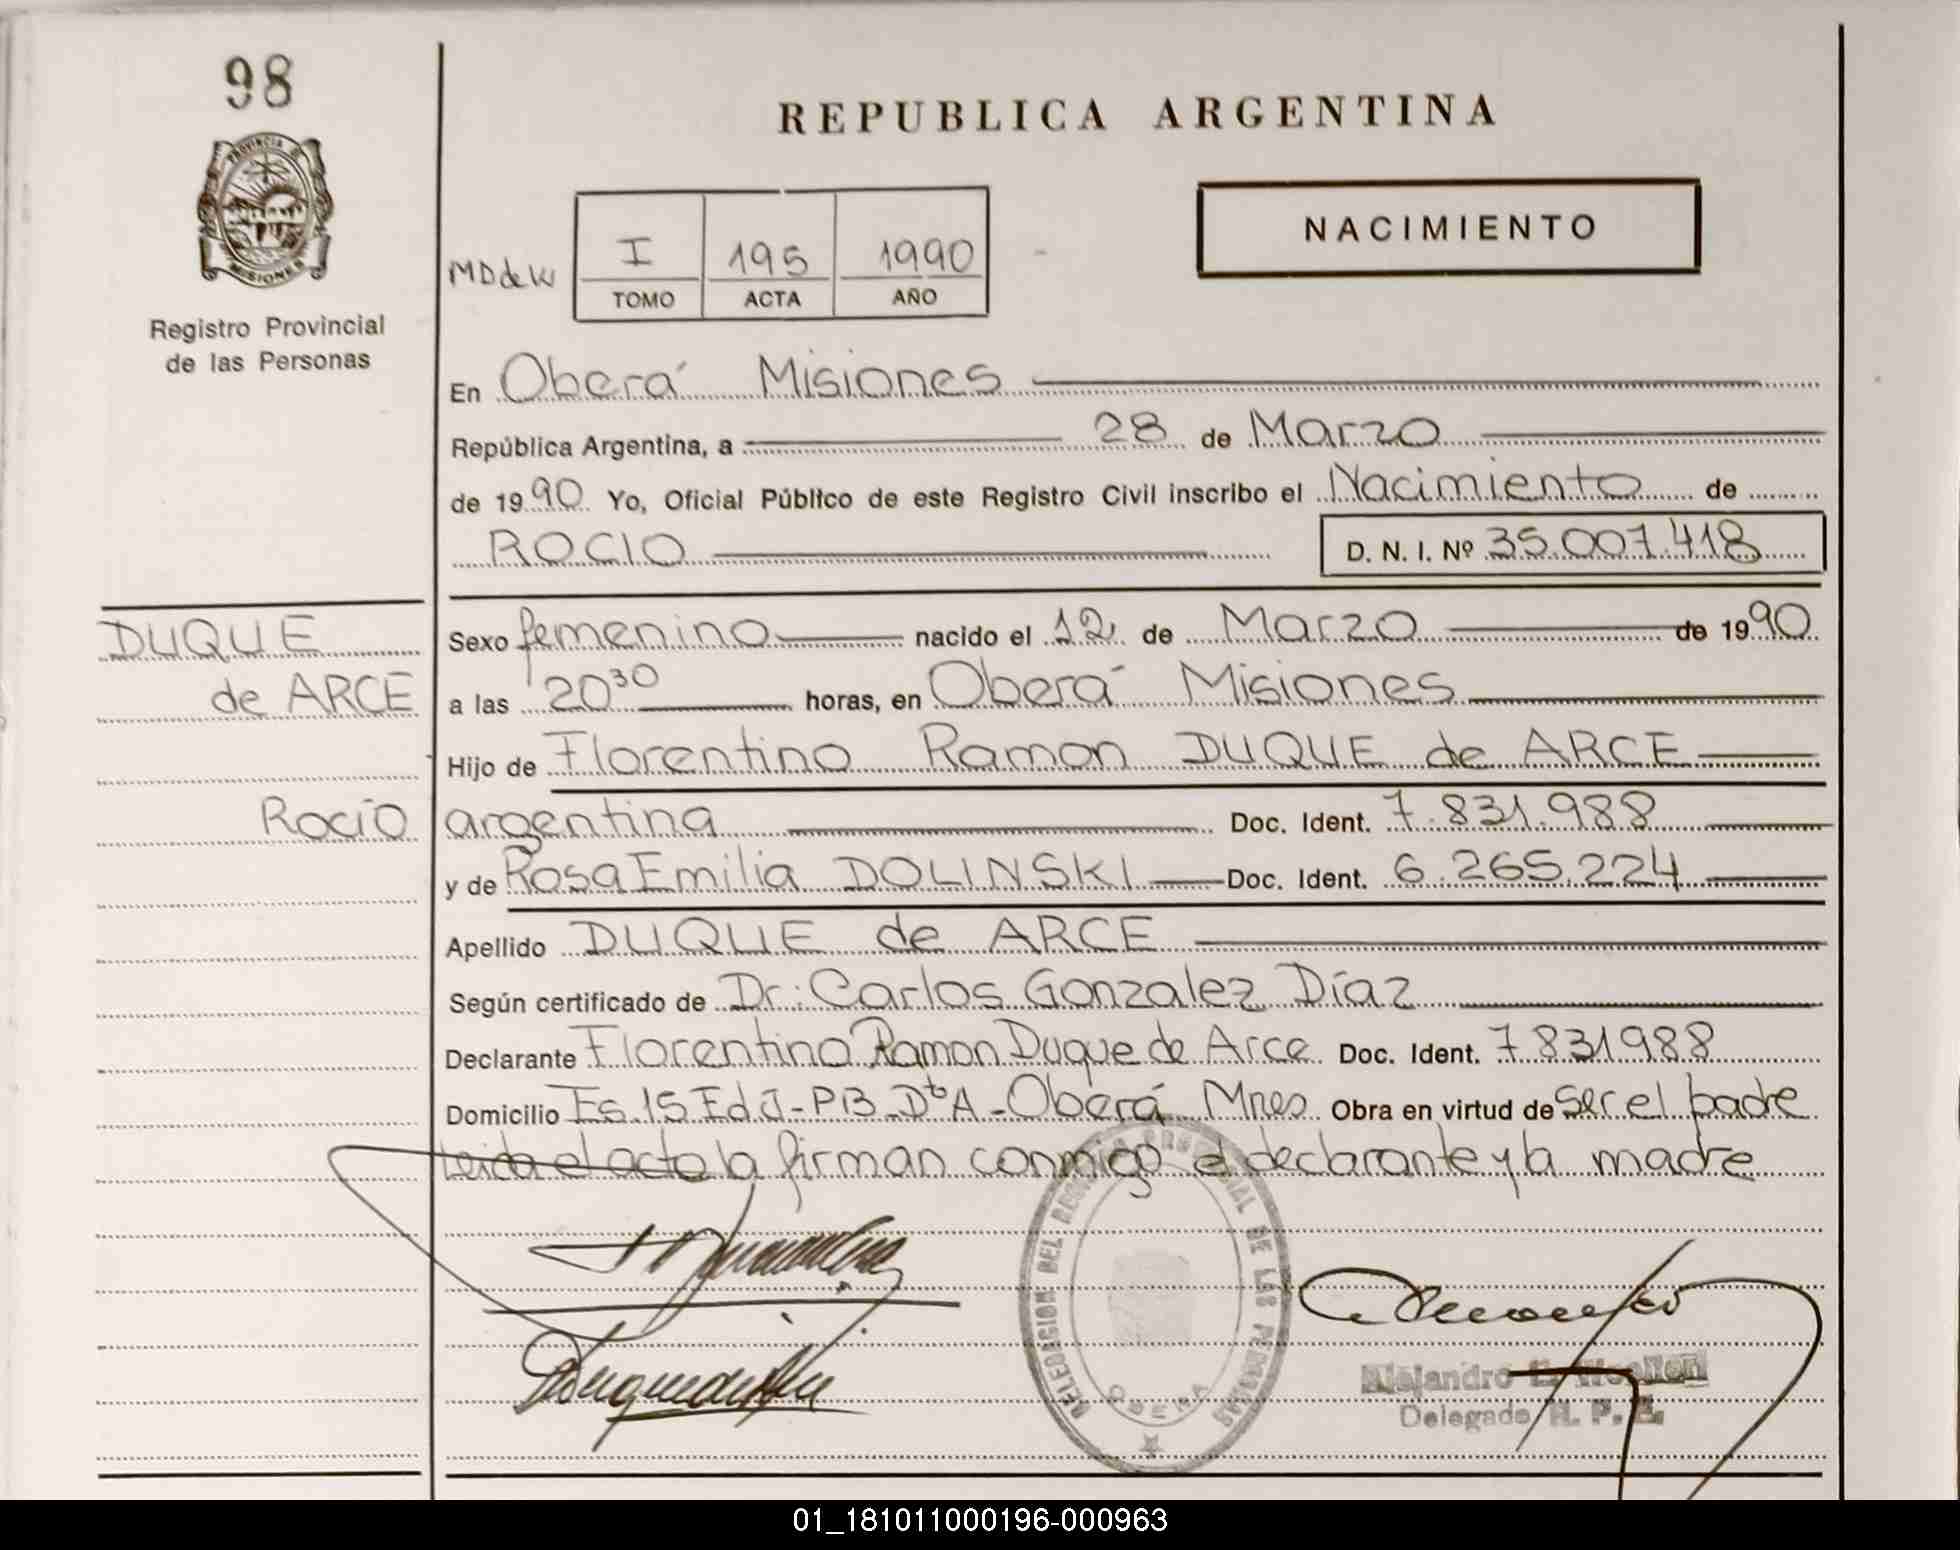 98
REPUBLICA ARGENTINA
PROVINCIA DE
MISIONES
Registro Provincial
de las Personas
MD de W
I 195 1990
TOMO ACTA AÑO
NACIMIENTO
En Oberá Misiones
República Argentina, a 28 de Marzo
de 1990 Yo, Oficial Público de este Registro Civil inscribo el Nacimiento de
ROCIO
D. N. I. Nº 35.007.418
DUQUE
de ARCE
Rocío
Sexo femenino nacido el 12 de Marzo de 1990
a las 20 30 horas, en Oberá Misiones
Hijo de Florentino Ramon DUQUE de ARCE
argentina Doc. Ident. 7.831.988
y de Rosa Emilia DOLINSKI Doc. Ident. 6.265.224
Apellido DUQUE de ARCE
Según certificado de Dr: Carlos Gonzalez Díaz
Declarante Florentino Ramon Duque de Arce Doc. Ident. 7831988
Domicilio Es.15 Ed J-PB-Dto A-Oberá Mnes Obra en virtud de Ser el padre
Leida el acta la firman conmigo el declarante y la madre
DELEGACION DEL REGISTRO PROVINCIAL DE LAS PERSONAS
OBERA
Alejandro
Delegado R. P. P.
01_181011000196-000963